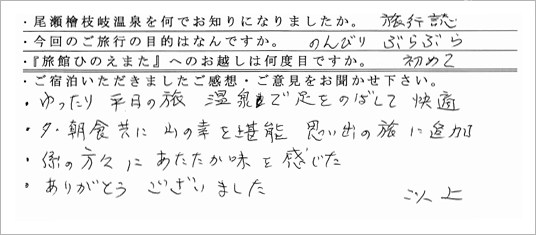 ・尾瀬檜枝岐温泉を何でお知りになりましたか。 旅行誌
・今回のご旅行の目的はなんですか。 のんびり ぶらぶら
・『旅館ひのえまた』へのお越しは何度目ですか。 初めて
・ご宿泊いただきましたご感想・ご意見をお聞かせ下さい。
・ゆったり 平日の旅 温泉まで足をのばして 快適
・夕・朝食共に 山の幸を堪能 思い出の旅に追加
・係の方々に あたたか味を感じた
・ありがとう ございました
以上